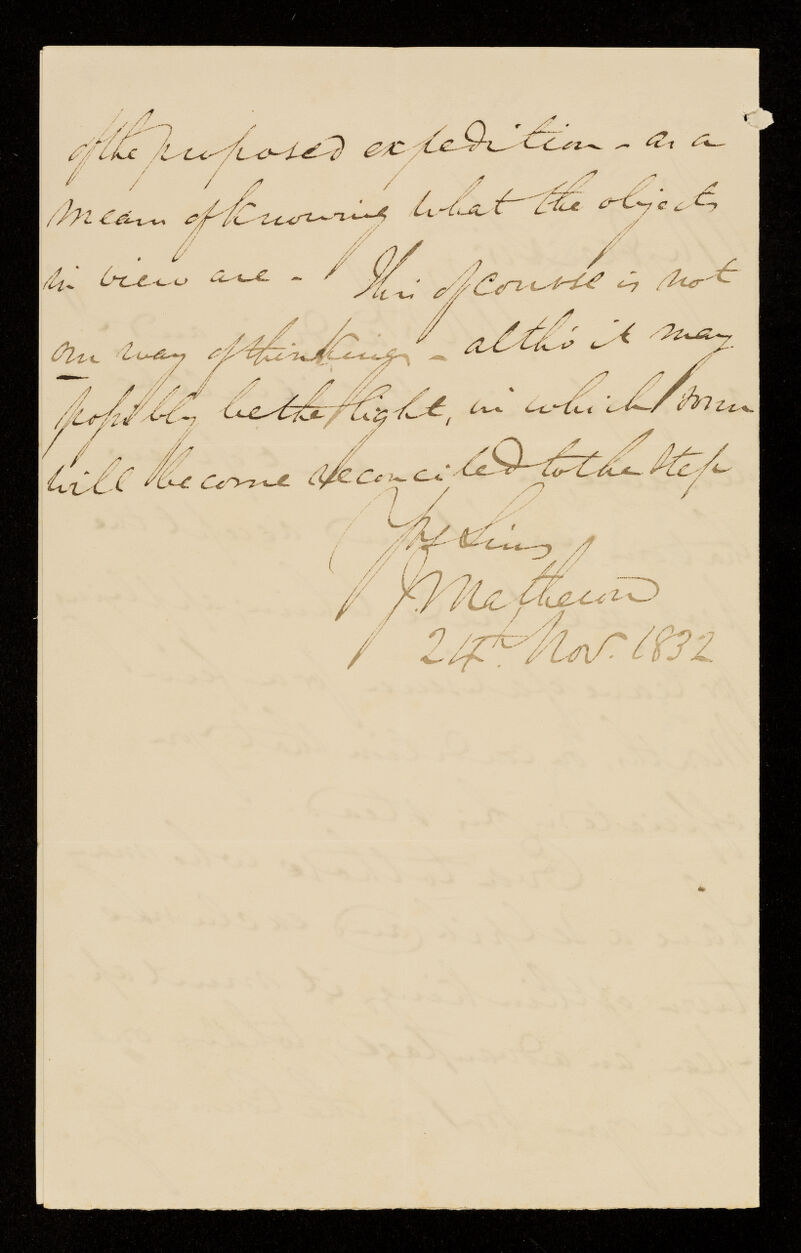 of the proposed expedition - as a
mean of knowing what the objects
in view are - This of course is not
our way of thinking - altho' it may
possibly be the light, in which some
will become reconciled to the step
Yrs Sin
J. Matheson
24th Nov. 1832